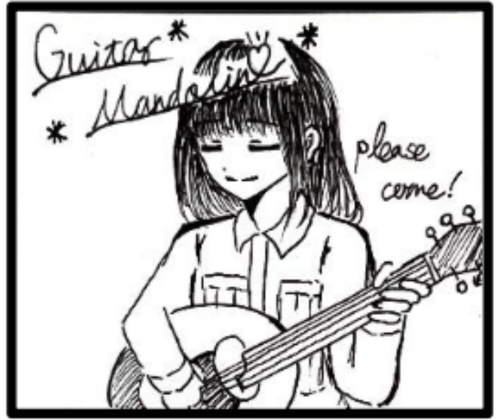 Guitar
Mandolin
please
come!